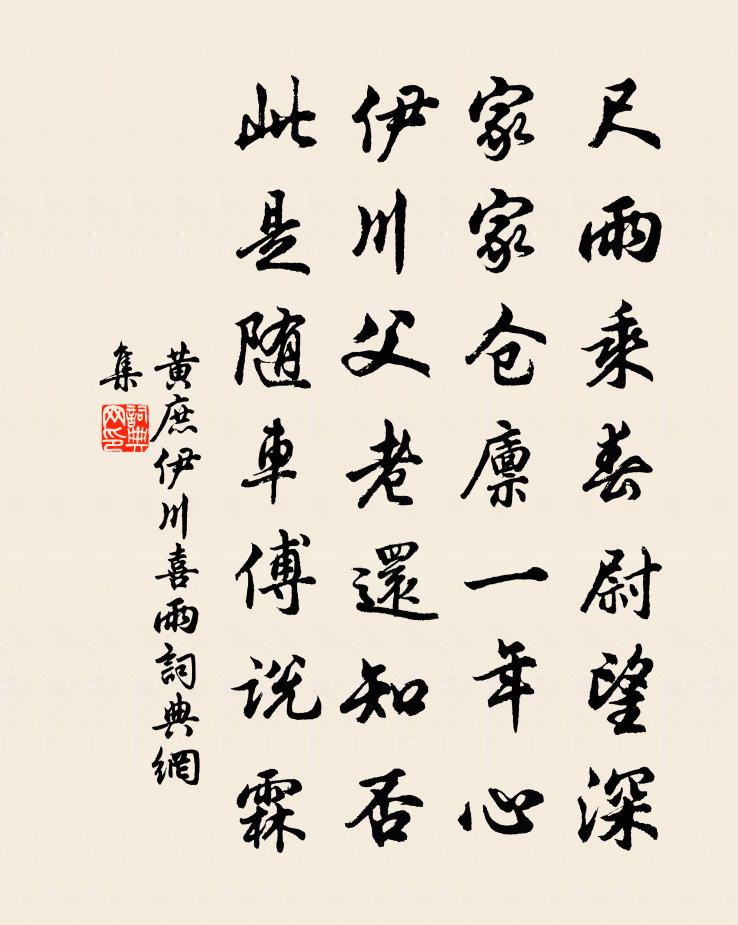 尺雨乘春尉望深
家家仓廪一年心
伊川父老還知否
此是随車傅说霖
黄庶伊川喜雨詞典網
集
詞典
网印